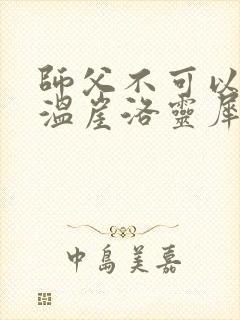 師父不可以
溫崖洛靈犀
中島美嘉